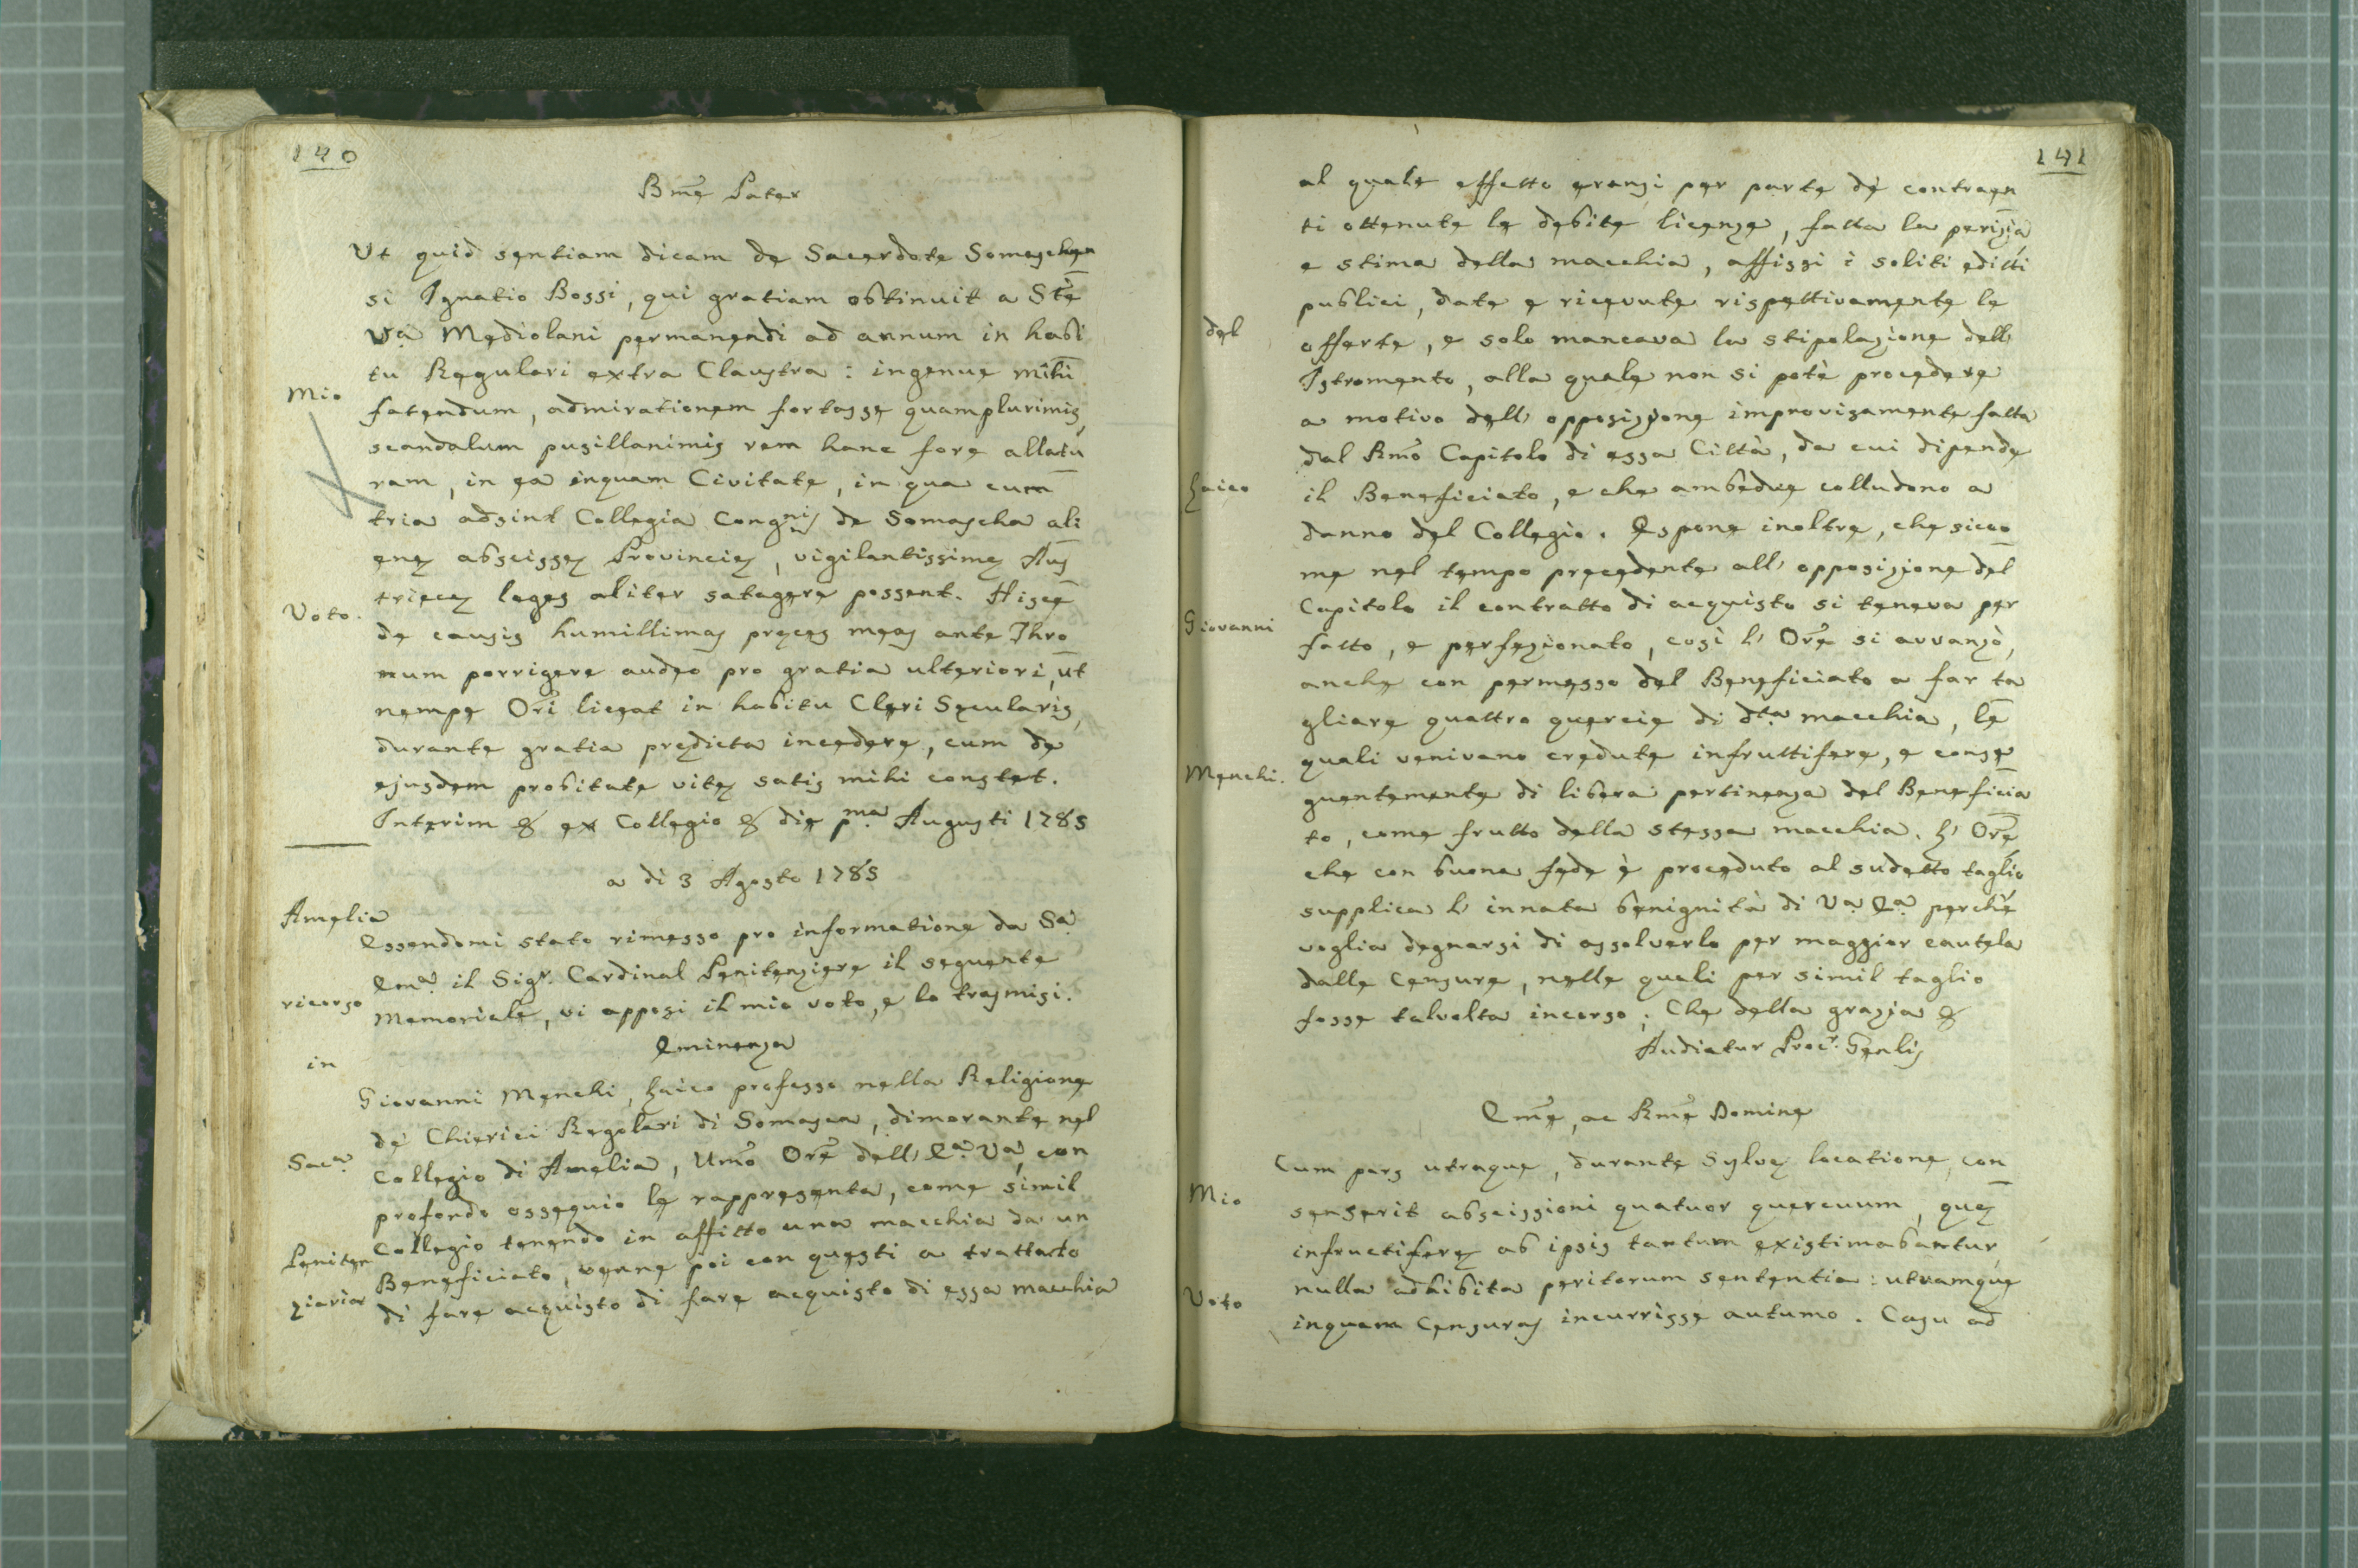 140
Bm̃e Pater
Ut quid sentiam dicam de Sacerdote Somaschen
si Ignatio Bossi, qui gratiam obtinuit a Stẽ
Va Mediolani permanendi ad annum in habi
tu Regulari extra Claustra: ingenue mihi
Mio
fatendum, admirationem fortasse quamplurimis,
scandalum pusillanimis rem hanc fore allatu
ram, in ea inquam Civitate, in qua cum
tria adsint Collegia Congnis de Somascha ali
enę abscissę Provincię, vigilantissimę Aus
trięcę leges aliter satagere possent. Hisce
Voto.
de causis humillimas pręces meas ante Thro
num porrigere audeo pro gratia ulteriori, ut
nempe Orĩ liceat in habitu Cleri Sęcularis,
durante gratia prędicta incedere, cum de
ejusdem probitate vitę satis mihi constet.
Interim & ex Collegio & die pma Augusti 1785
a di 3 Agosto 1785
Amelia
Essendomi stato rimesso pro informatione da Sa
Ema. il Sigr. Cardinal Penitenziere il seguente
ricorso
Memoriale, vi apposi il mio voto, e lo trasmisi.
Eminenza
in
Giovanni Menchi, Laico professo nella Religione
de' Chierici Regolari di Somasca, dimorante nel
Saca.
Collegio di Amelia, Um̃o Orẽ dell' Ea. Va, con
profondo ossequio le rappresenta, come simil
Collegio tenendo in affitto una macchia da un
Peniten
Beneficiato, venne poi con questi a trattato
ziaria
di fare acquisto di fare acquisto di essa macchia
141
al quale effetto eransi per parte de' contraen
ti ottenute le debite licenze, fatta la perizia
e stima della macchia, affissi i soliti editti
publici, date e ricevute rispettivamente le
del
offerte, e solo mancava la stipolazione dell'
Istromento, alla quale non si potè procedere
a motivo dell' opposizione improvisamente fatta
dal Rm̃o Capitolo di essa Città, da cui dipende
Laico
il Beneficiato, e che ambedue colludono a
danno del Collegio. Espone inoltre, che sicco
me nel tempo precedente all' opposizione del
Capitolo il contratto di acquisto si teneva per
Giovanni
fatto, e perfezionato, così l' Orẽ si avvanzò,
anche con permesso del Beneficiato a far ta
gliare quattro quercie di dta. macchia, le
quali venivano credute infruttifere, e conse
Menchi.
guentemente di libera pertinenza del Beneficia
to, come frutto della stessa macchia. L' Orẽ
che con buona fede è proceduto al sudetto taglio
supplica l' innata benignità di Va. Ea. perchè
voglia degnarsi di assolverlo per maggior cautela
dalle Censure, nelle quali per simil taglio
fosse talvolta incorso; Che della grazia &
Audiatur Procr. Genlis
Em̃e, ac Rm̃e Domine
Cum pars utraque, durante Sylvę locatione, con
Mio
senserit abscissioni quatuor quercuum, quę
infructiferę ab ipsis tantum existimabantur,
nulla adhibita peritorum sententia: utramque
Voto
inquam Censuras incurrisse autumo. Casu ad